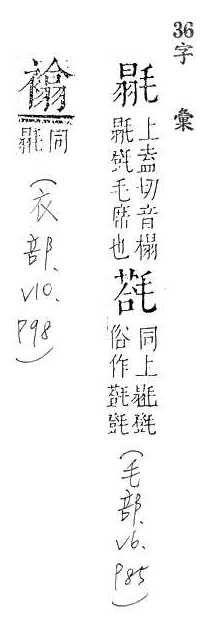 36字彙
毾
土盍切音榻
毾㲪毛席也
同上毾㲪
俗作
(毛部、V6、P85)
褟
同
毾
(衣部、V10、P98)